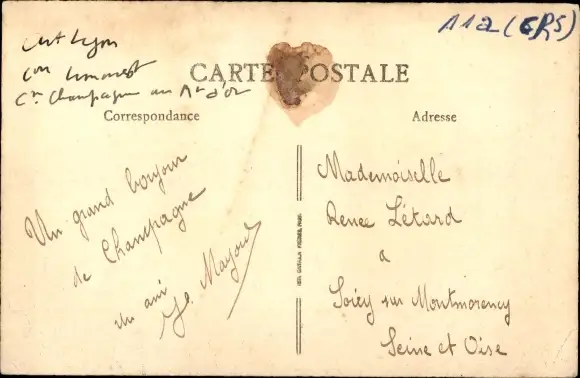 art Lyon
con Limonest
Cne Champagne au Mt d'or
112 (
CARTE POSTALE
Correspondance
Adresse
Un grand bonjour
de Champagne
du ami
Mademoiselle
Renee Létard
a
Soisy sur Montmorency
Seine et Oise